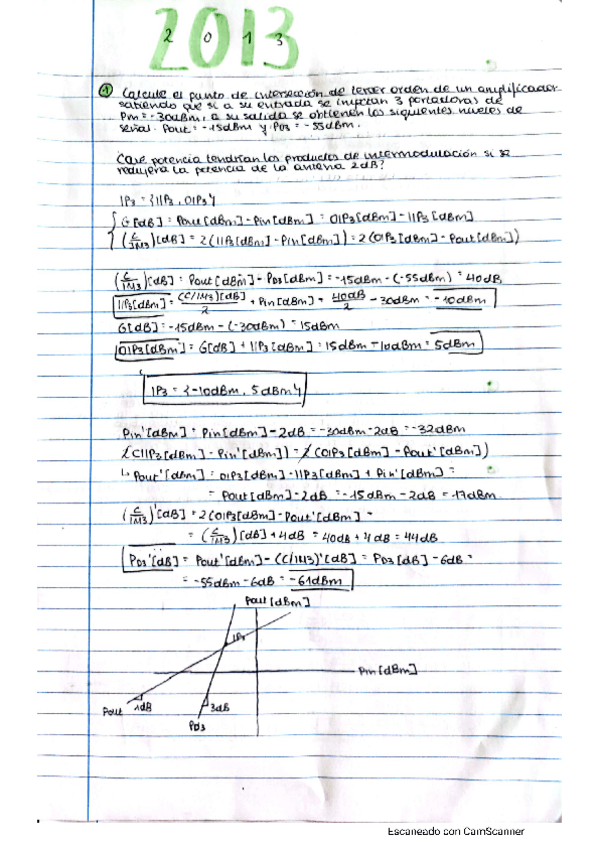 2013
2 0 1 3
① Calcule el punto de intersección de tercer orden de un amplificador
sabiendo que si a su entrada se inyectan 3 portadoras de
Pin = -30dBm, a su salida se obtienen los siguientes niveles de
señal. Pout = -15dBm y PD3 = -55dBm.
Qué potencia tendrían los productos de intermodulación si se
redujera la potencia de la antena 2dB?
IP3 = {IIP3, OIP3}
G[dB] = Pout[dBm] - Pin[dBm] = OIP3[dBm] - IIP3[dBm]
(C/IM3)[dB] = 2(IIP3[dBm] - Pin[dBm]) = 2(OIP3[dBm] - Pout[dBm])
(C/IM3)[dB] = Pout[dBm] - PD3[dBm] = -15dBm - (-55dBm) = 40dB
IIP3[dBm] = (C/IM3)[dB]/2 + Pin[dBm] = 40dB/2 - 30dBm = -10dBm
G[dB] = -15dBm - (-30dBm) = 15dBm
OIP3[dBm] = G[dB] + IIP3[dBm] = 15dBm - 10dBm = 5dBm
IP3 = {-10dBm, 5dBm}
Pin'[dBm] = Pin[dBm] - 2dB = -30dBm - 2dB = -32dBm
2(IIP3[dBm] - Pin'[dBm]) = 2(OIP3[dBm] - Pout'[dBm])
↳ Pout'[dBm] = OIP3[dBm] - IIP3[dBm] + Pin'[dBm] =
= Pout[dBm] - 2dB = -15dBm - 2dB = -17dBm
(C/IM3)'[dB] = 2(OIP3[dBm] - Pout'[dBm] =
= (C/IM3)[dB] + 4dB = 40dB + 4dB = 44dB
PD3'[dB] = Pout'[dBm] - (C/IM3)'[dB] = PD3[dB] - 6dB =
= -55dBm - 6dB = -61dBm
Pout[dBm]
IP3
Pin[dBm]
Pout 1dB 3dB
PD3
Escaneado con CamScanner